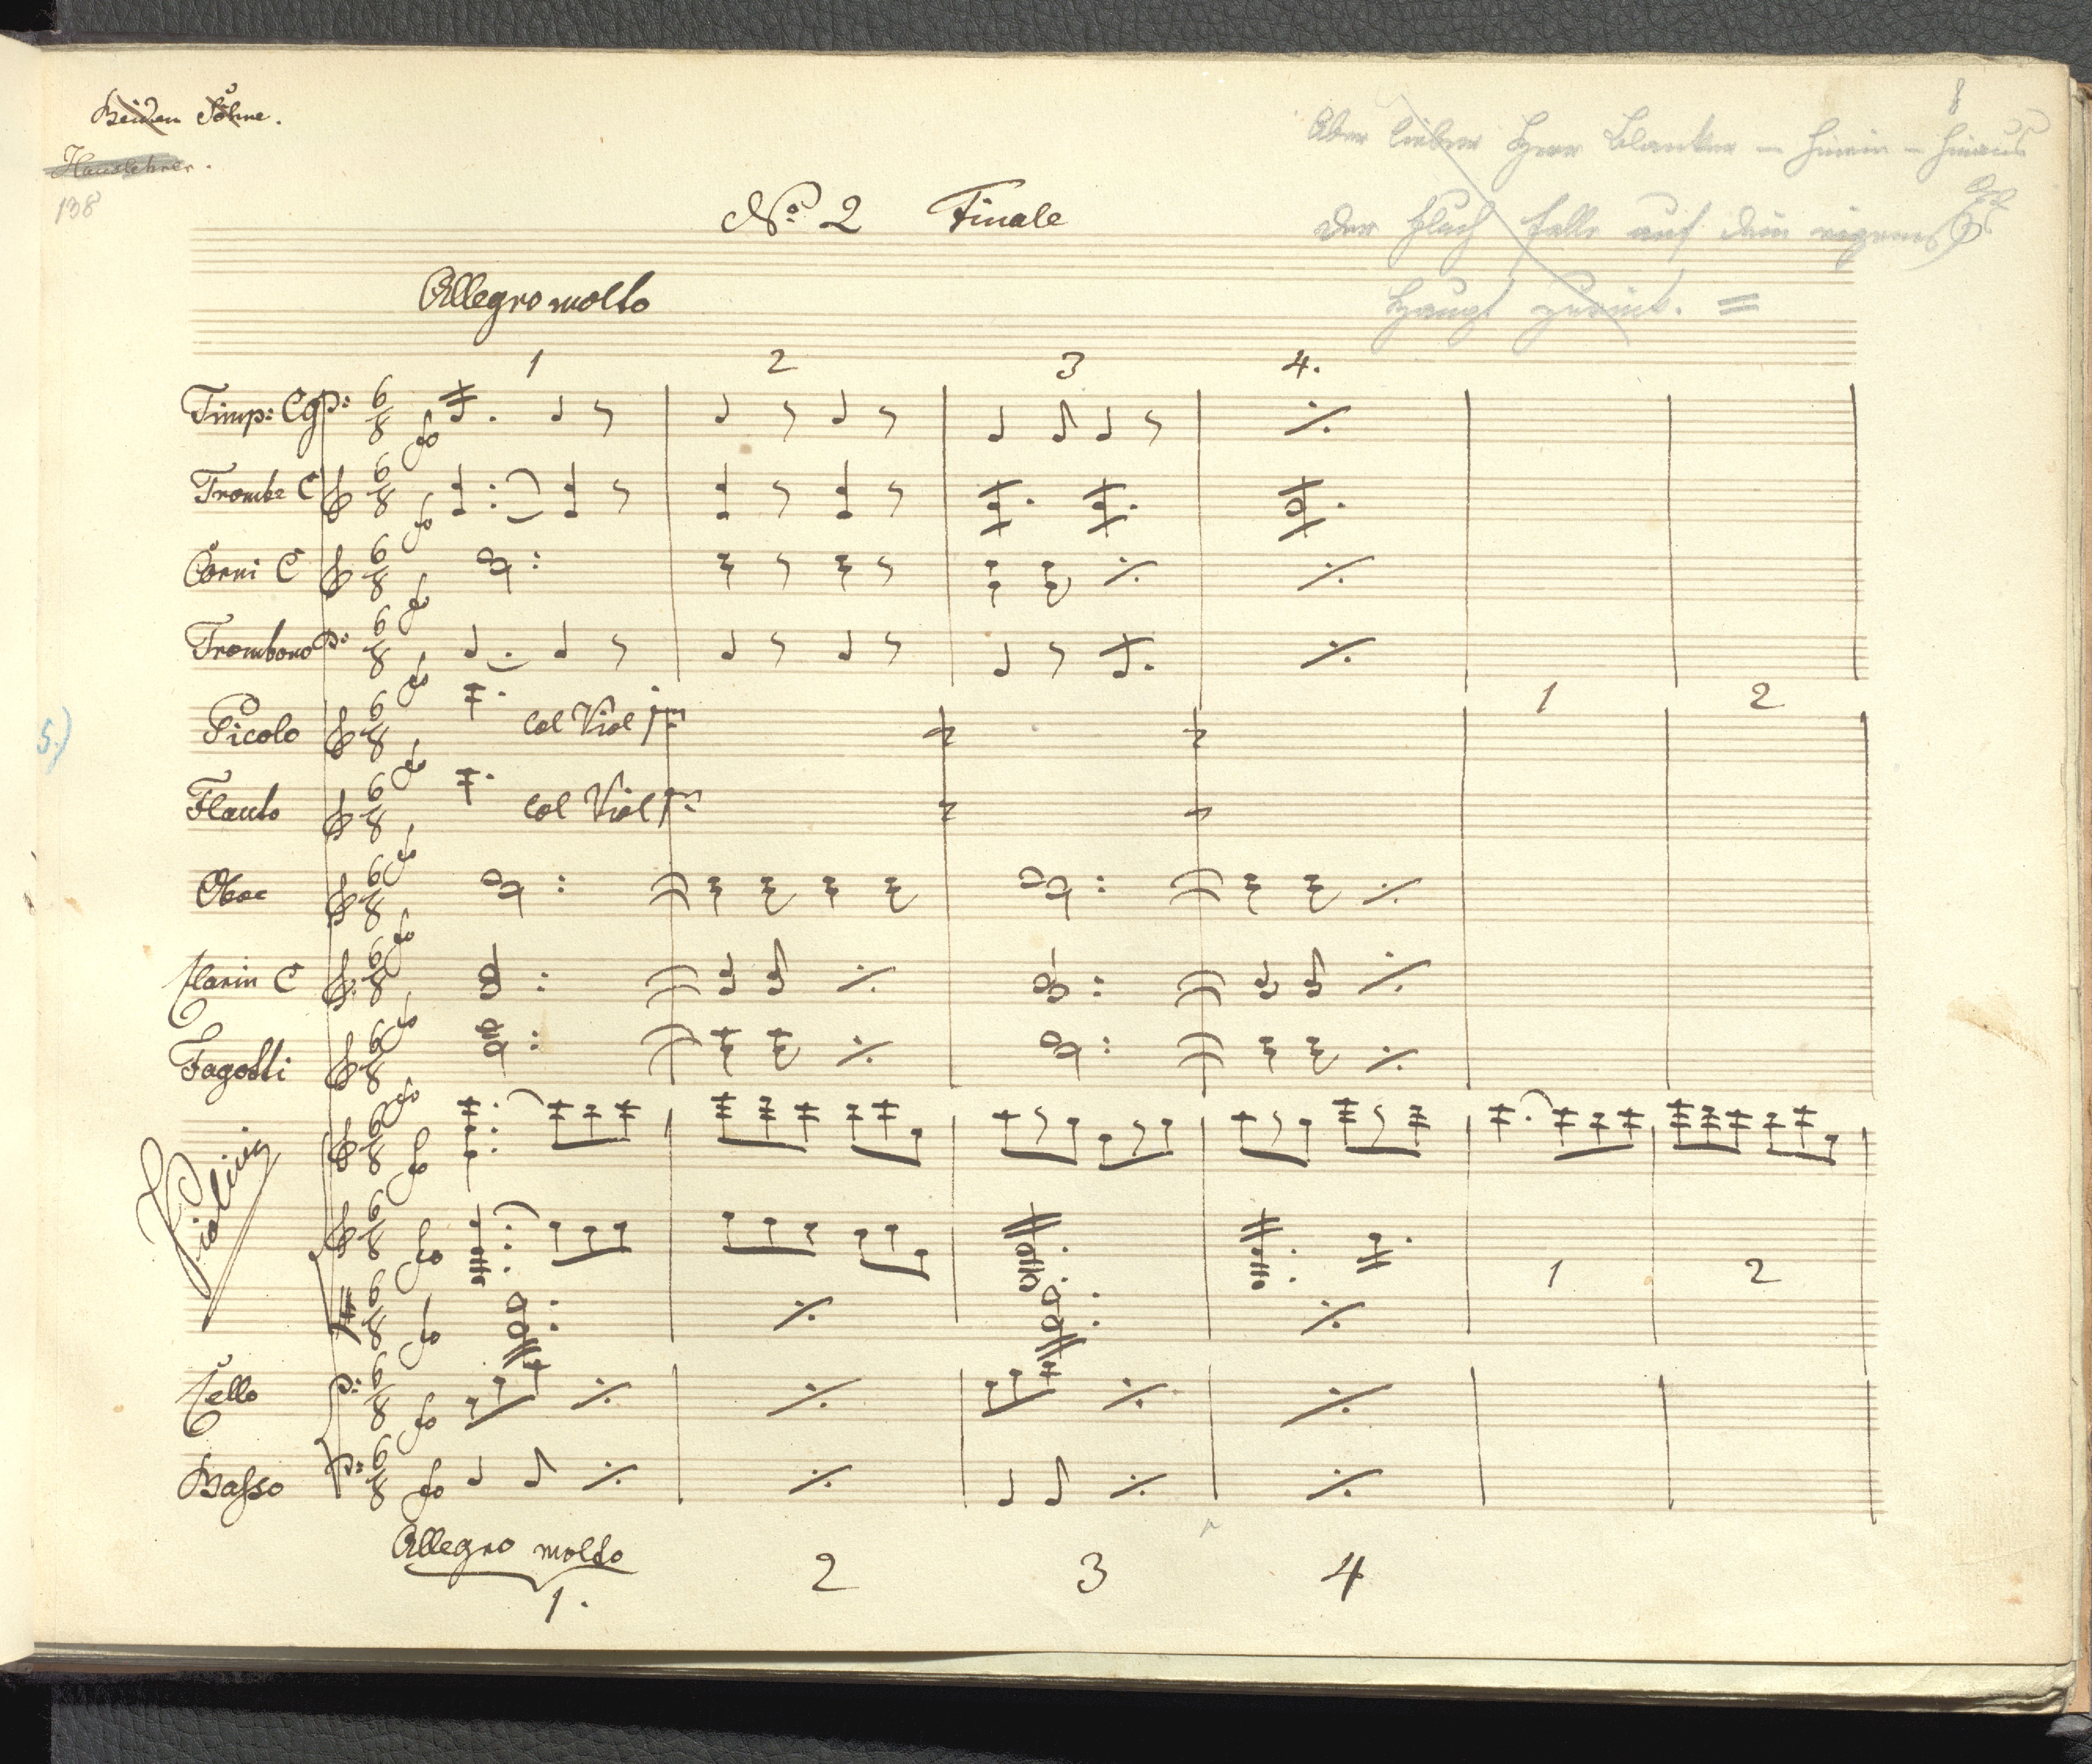 Beiden Söhne.
Hauslehrer.
138
8
Aber lieber Herr Blanker – hinein – hinaus
der Fluch falle auf dein eigenes
Haupt zurück. =
No. 2 Finale
Allegro molto
1 2 3 4.
Timp: CG 6/8 fo
Trombe C 6/8 fo
Corni C 6/8 fo
Trombono 6/8 fo
1 2
Picolo 6/8 fo col Viol pm
5.)
Flauto 6/8 fo col Viol pm
Oboe 6/8 fo
Clarin C 6/8 fo
Fagotti 6/8 fo
Violini 6/8 fo
6/8 fo
1 2
6/8 fo
Cello 6/8 fo
Basso 6/8 fo
Allegro molto
1. 2 3 4